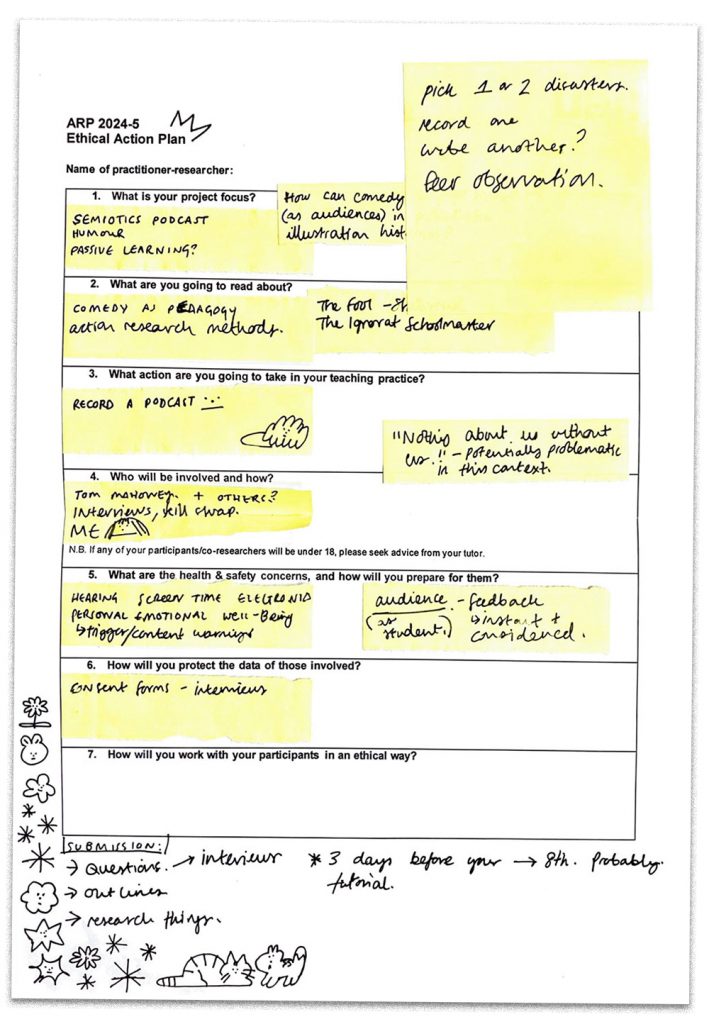 pick 1 or 2 disasters.
record one
write another?
Peer observation.
ARP 2024-5
Ethical Action Plan
Name of practitioner-researcher:
1. What is your project focus?
SEMIOTICS PODCAST
HUMOUR
PASSIVE LEARNING?
How can comedy
(as audiences) in
illustration hist
2. What are you going to read about?
COMEDY AS PEDAGOGY
action research methods.
The Fool -
The Ignorat Schoolmaster
3. What action are you going to take in your teaching practice?
RECORD A PODCAST
"Nothing about us without
us." - potentially problematic
in this context.
4. Who will be involved and how?
TOM MAHONEY. + OTHERS?
Interviews, skill swap.
ME
N.B. If any of your participants/co-researchers will be under 18, please seek advice from your tutor.
5. What are the health & safety concerns, and how will you prepare for them?
HEARING SCREEN TIME ELECTRONIC
PERSONAL EMOTIONAL WELL-Being
↳ trigger/content warnings
audience. - feedback
(as student.) ↳ instant +
considered.
6. How will you protect the data of those involved?
consent forms - interviews
7. How will you work with your participants in an ethical way?
SUBMISSION:
→ Questions. → interviews
→ outlines
→ research things.
* 3 days before your → 8th. Probably.
tutorial.